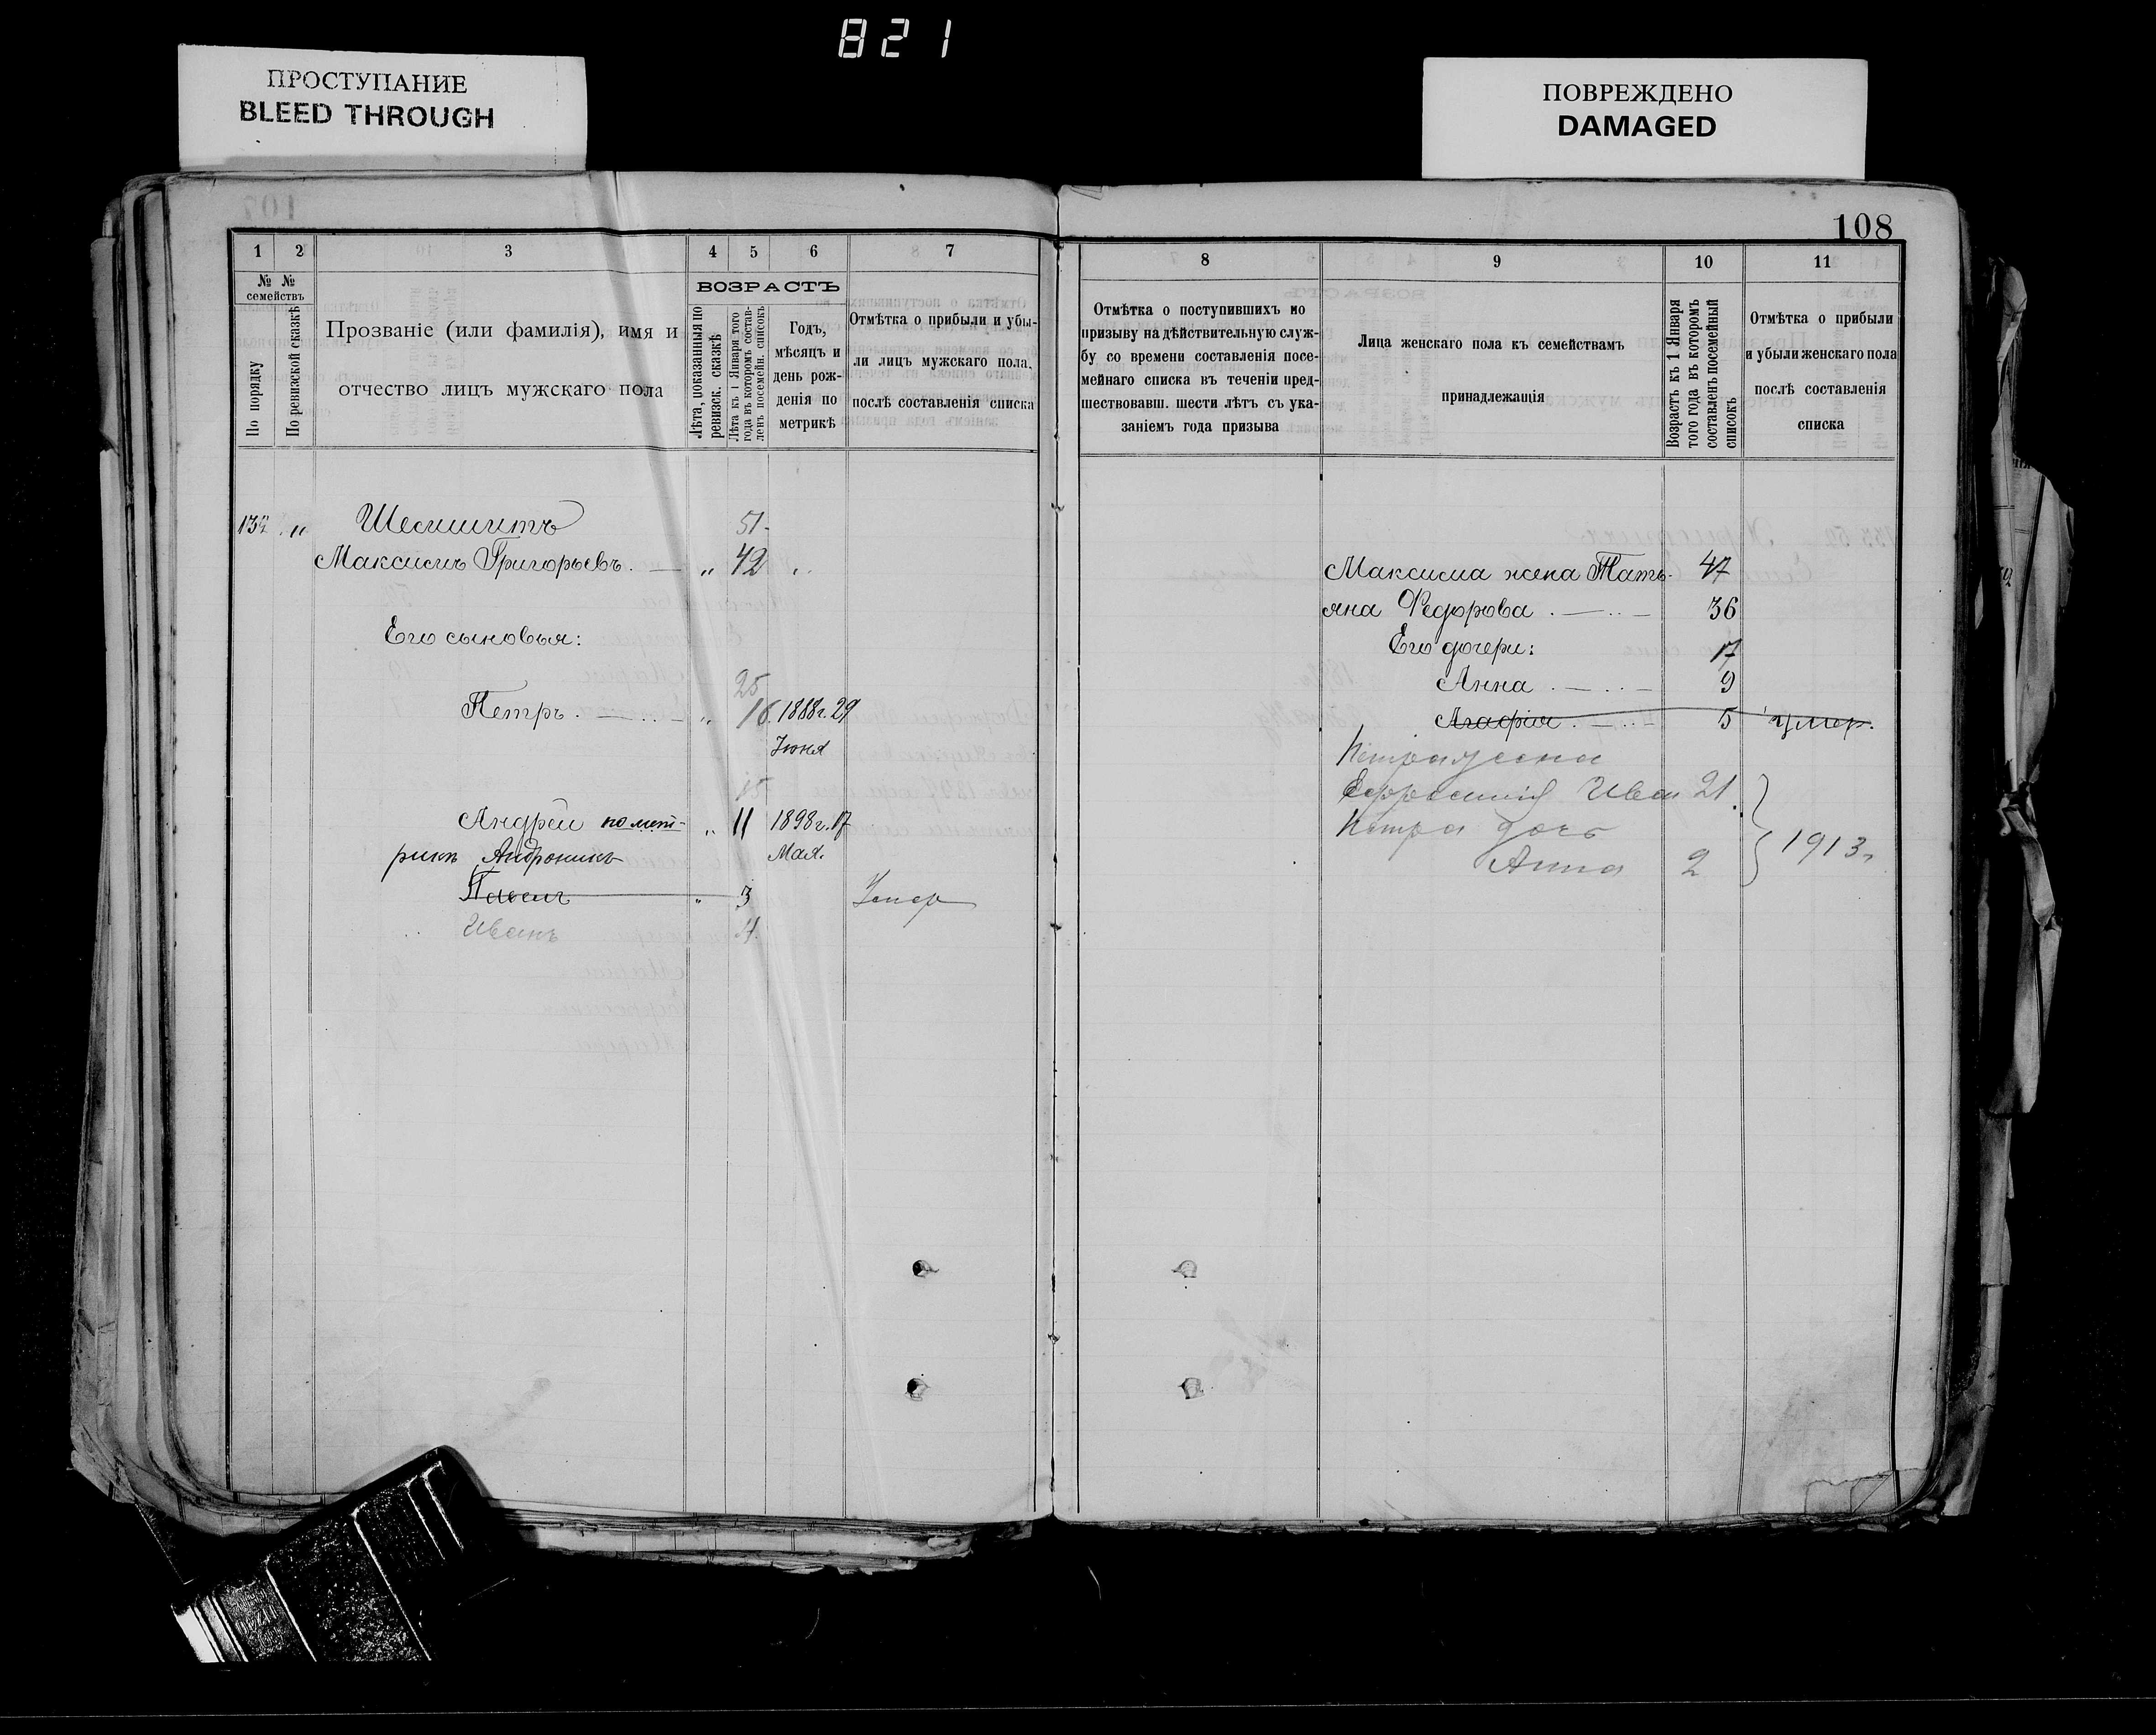 821
ПРОСТУПАНИЕ
BLEED THROUGH
ПОВРЕЖДЕНО
DAMAGED
108
1 2 3 4 5 6 7
№ № семействъ
По порядку
По ревизской сказкѣ
Прозваніе (или фамилія), имя и
отчество лицъ мужскаго пола
ВОЗРАСТЪ
Лѣта, показанныя по
ревизск. сказкѣ
Лѣта къ 1 Января того
года въ которомъ состав-
ленъ посемейн. списокъ
Годъ,
мѣсяцъ и
день рож-
денія по
метрикѣ
Отмѣтка о прибыли и убы-
ли лицъ мужскаго пола,
послѣ составленія списка
51
Максимъ Григорьевъ. — „ 42 „
Его сыновья:
25
Петръ. — „ 16. 1888г. 29
Іюня
15
Андрей по мет- „ 11 1898г. 17
рикѣ Андроникъ Мая.
Павелъ „ 3 Умер
Иванъ 4.
8 9 10 11
Отмѣтка о поступившихъ по
призыву на дѣйствительную служ-
бу со времени составленія посе-
мейнаго списка въ теченіи пред-
шествовавш. шести лѣтъ съ ука-
заніемъ года призыва
Лица женскаго пола къ семействамъ
принадлежащія
Возрастъ къ 1 Января
того года въ которомъ
составленъ посемейный
списокъ
Отмѣтка о прибыли
и убыли женскаго пола
послѣ составленія
списка
Максима жена Тать- 47
яна Федорова. — 36
Его дочери: 17
Анна. — 9
Агафія. — 5 умер.
Петра жена
Ефросинія Иван 21.
Петра дочь
Анна 2
1913г